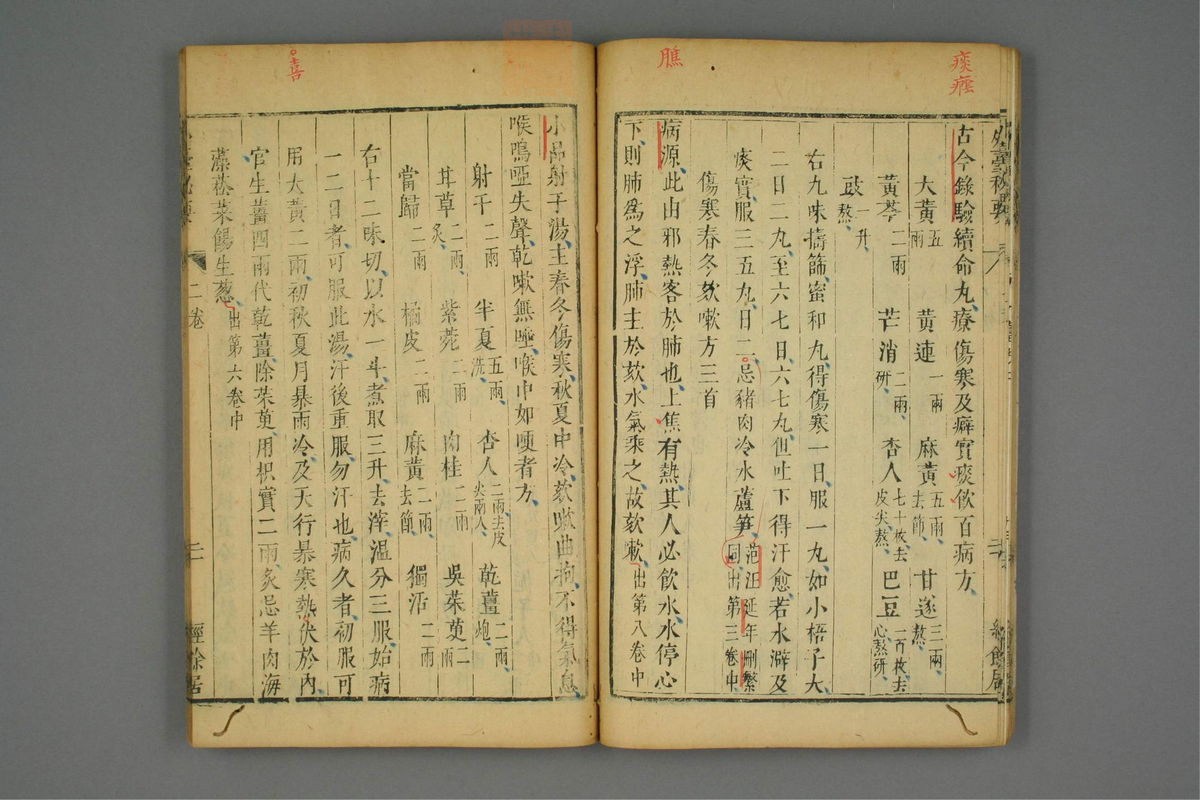 痰癊
膲
古今錄驗續命丸療傷寒及癖實痰飲百病方
大黃五兩 黃連一兩 麻黃五兩去節 甘遂三兩熬
黃芩二兩 芒消二兩研 杏人七十枚去皮尖熬 巴豆一百枚去心熬研
豉一升熬
右九味擣篩蜜和丸得傷寒一日服一丸如小梧子大
二日二丸至六七日六七丸但吐下得汗愈若水澼及
痰實服三五丸日二忌豬肉冷水蘆笋范汪延年刪繁同出第三卷中
傷寒春冬欬嗽方三首
病源此由邪熱客於肺也上焦有熱其人必飲水水停心
下則肺為之浮肺主於欬水氣乘之故欬嗽出第八卷中
喜
小品射干湯主春冬傷寒秋夏中冷欬嗽曲拘不得氣息
喉鳴啞失聲乾嗽無唾喉中如哽者方
射干二兩 半夏五兩洗 杏人二兩去皮尖兩人 乾薑二兩炮
甘草二兩炙 紫菀二兩 肉桂二兩 吳茱萸二兩
當歸二兩 橘皮二兩 麻黃二兩去節 獨活二兩
右十二味切以水一斗煮取三升去滓溫分三服始病
一二日者可服此湯汗後重服勿汗也病久者初服可
用大黃二兩初秋夏月暴雨冷及天行暴寒熱伏於內
宜生薑四兩代乾薑除茱萸用枳實二兩炙忌羊肉海
藻菘菜餳生蔥出第六卷中
二卷
二
經餘居